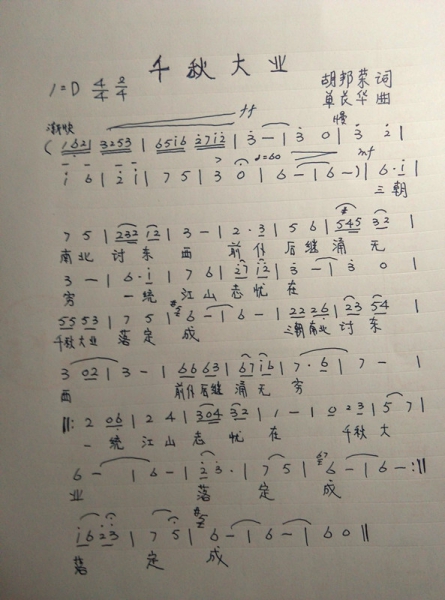 千秋大业
1=D 4/4 2/4 胡邦荣 词
单茂华 曲
渐快 ff 慢
( 1621 | 3253 | 6516 2712 | 3 - | 3 0 | 3 2 |
1 6 | 2 1 | 7 5 | 3 0 | 6 - | 6 - ) | 6 · 1 |
♩=60 mf
三朝
7 5 | 232 12 | 3 - | 2 · 3 | 5 6 | #545 32 |
南北 讨东 西 前仆 后继 涌无
3 - | 6 · 1 | 7 6 | 27 12 | 3 - | 3 0 |
穷 一统 江山 志忧 在
55 53 | 7 5 | 6 - | 6 - | 22 26 | 23 54 |
千秋大业 落定 成 三朝南北 讨东
3 02 | 3 - | 66 63 | 67 16 | 7 · 6 | 7 - |
西 前仆后继 涌无 穷
‖: 2 06 | 2 4 | 304 32 | 1 - | 0 23 | 5 7 |
一统 江山 志忧 在 千秋大
6 - | 6 - | 2 3 · | 7 5 | 6 - | 6 - :‖
业 落 定 成
16 23 | 7 5 | 6 - | 6 - | 6 0 ‖
落 定 成